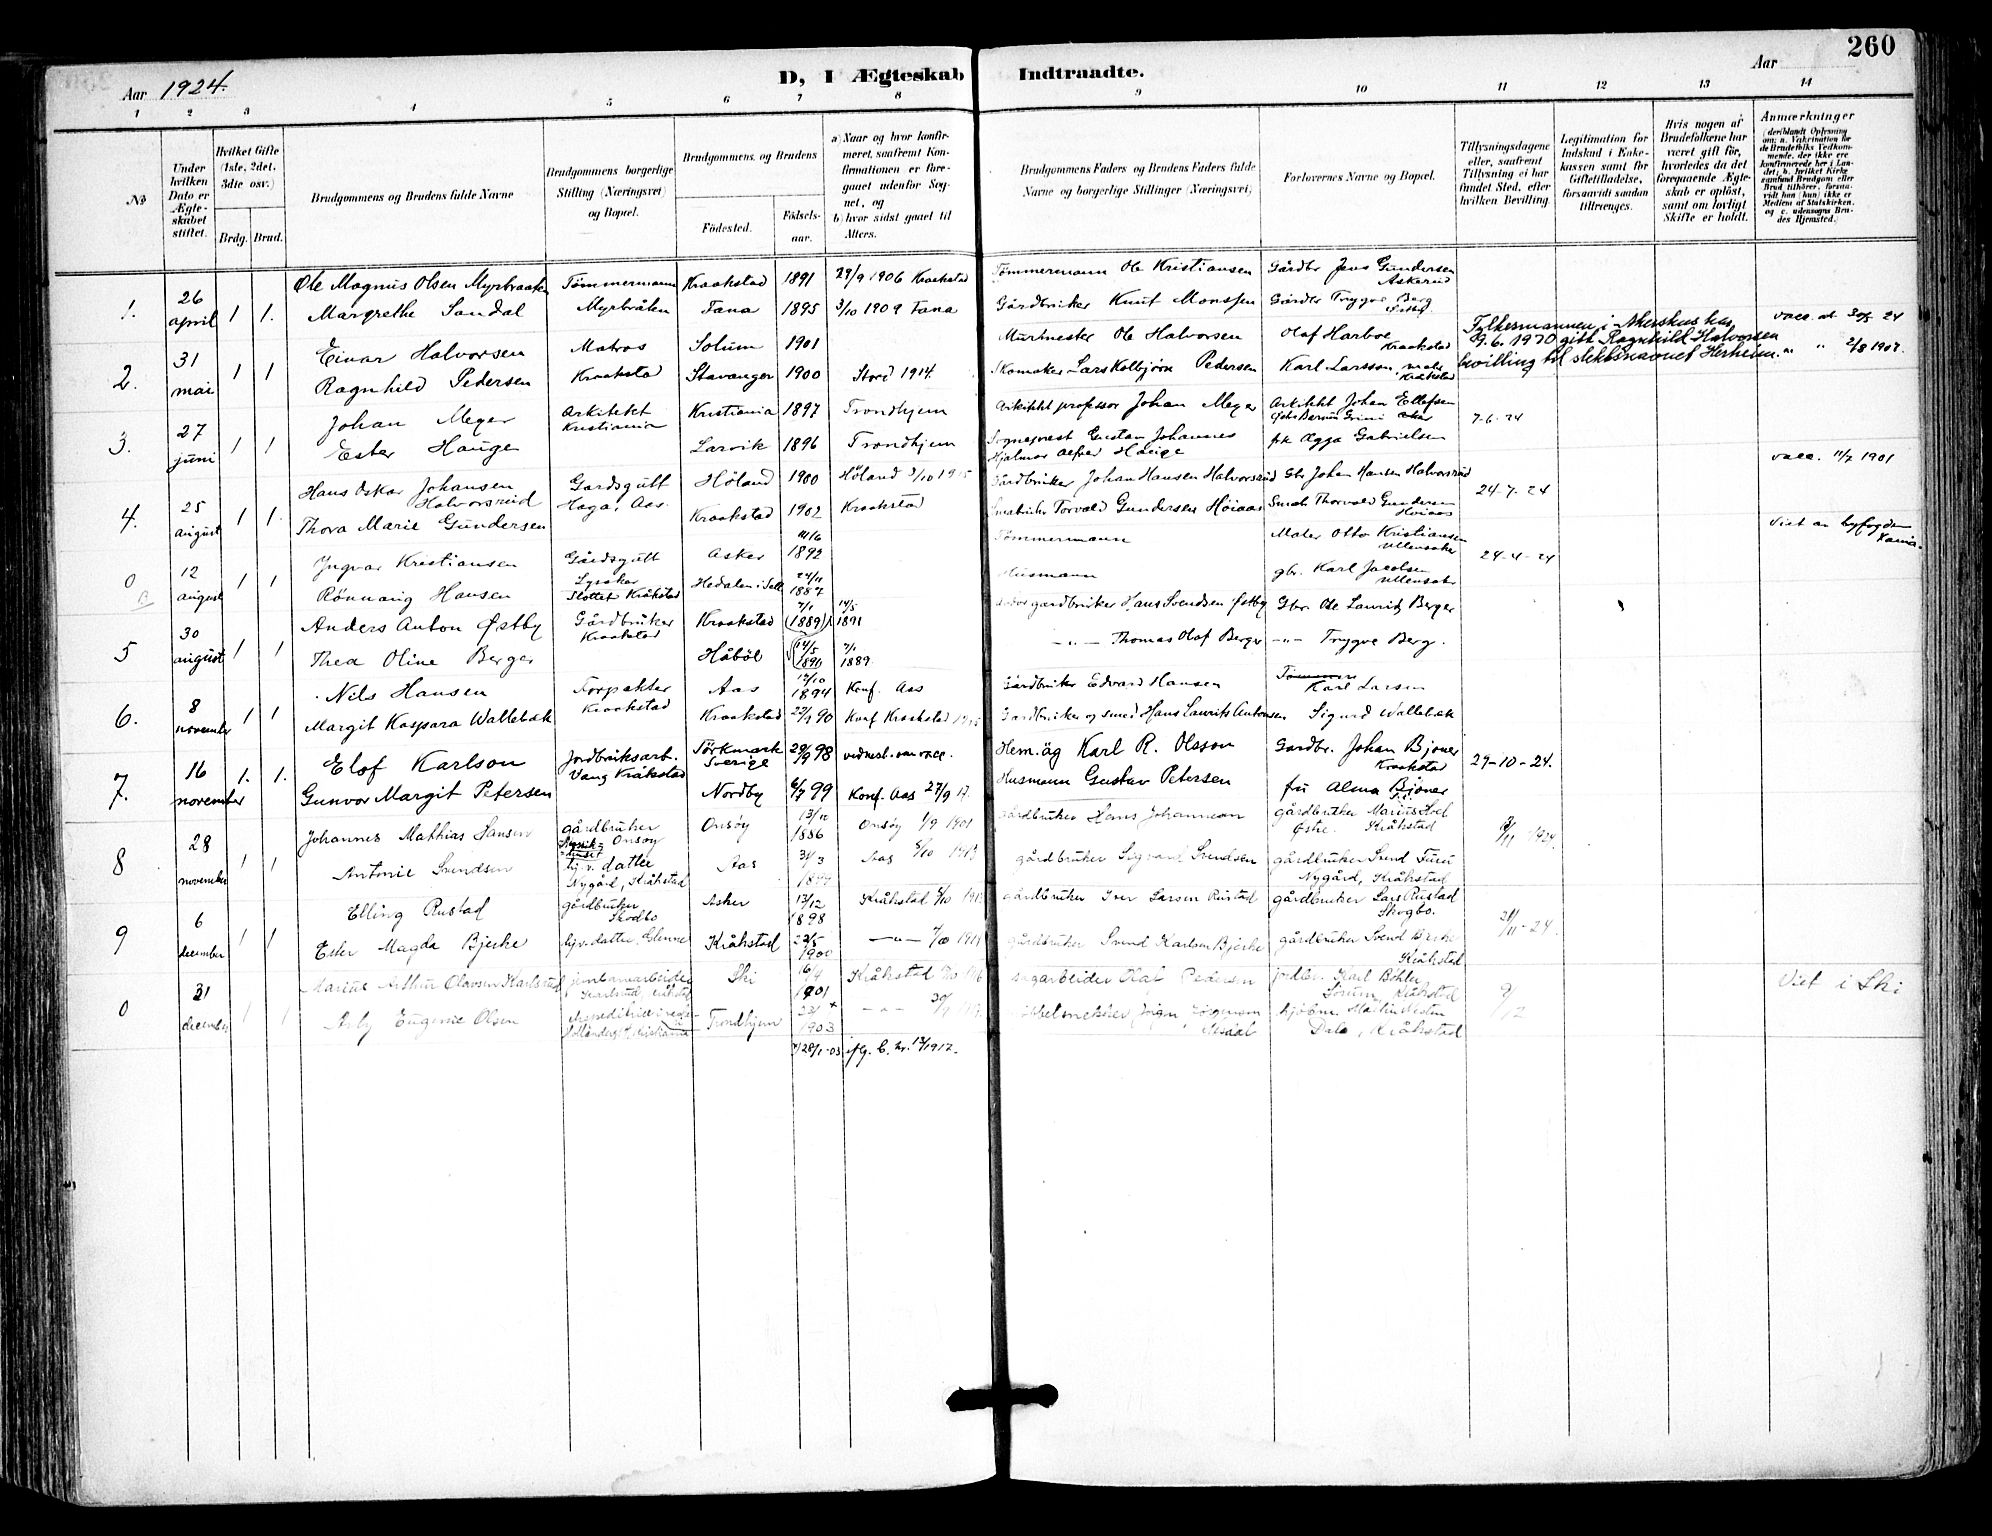 260
Aar 1924.
D, I Ægteskab Indtraadte.
Aar
1 2 3 4 5 6 7 8 9 10 11 12 13 14
No
Under hvilken Dato er Ægteskabet stiftet.
Hvilket Gifte (1ste, 2det, 3die osv.)
Brdg. Brud.
Brudgommens og Brudens fulde Navne
Brudgommens borgerlige Stilling (Næringsvei) og Bopæl.
Brudgommens og Brudens
Födested. Födselsaar.
a) Naar og hvor konfirmeret, saafremt Konfirmationen er foregaaet udenfor Sognet, og
b) hvor sidst gaaet til Alters.
Brudgommens Faders og Brudens Faders fulde Navne og borgerlige Stillinger (Næringsvei)
Forlovernes Navne og Bopæl.
Tillysningsdagene eller, saafremt Tillysning ei har fundet Sted, efter hvilken Bevilling.
Legitimation for Indskud i Enkekassen samt for Giftetilladelse, forsaavidt saadan tiltrænges.
Hvis nogen af Brudefolkene har været gift för, hvorledes da det foregaaende Ægteskab er oplöst, samt om lovligt Skifte er holdt.
Anmærkninger
(deriblandt Oplysning om: a. Vakcination for de Brudefolks Vedkommende, der ikke ere konfirmerede her i Landet; b. hvilket Kirkesamfund Brudgom eller Brud tilhörer, forsaavidt han (hun) ikke er Medlem af Statskirken, og c. udensogns Brudes Hjemsted.)
1. 26 april 1 1.
Ole Magnus Olsen Myrbraaten Tömmermann Kraakstad 1891 29/9 1906 Kraakstad Tömmermann Ole Kristiansen Gårdbr Jens Gundersen Askerud
Margrethe Sandal Myrbråten Fana 1895 3/10 1909 Fana Gårdbruker Knut Monssen Gårdbr Trygve Berg
2. 31 mai 1 1
Einar Halvorsen Matros Solum 1901 Murmester Ole Halvorsen Olaf Harboe Kraakstad
vacc. at 30/5 24
Fylkesmannen i Akershus har 19.6.1930 gitt Ragnhild Halvorsen bevilling til slektsnavnet Herheim.
Ragnhild Pedersen Kraakstad Stavanger 1900 Stord 1914. Skomaker Lars Kolbjörn Pedersen Karl Larsson, maler Kråkstad " " 2/8 1907.
3. 27 juni 1 1
Johan Meyer Arkitekt Kristiania Kristiania 1897 Trondhjem Arkitekt professor Johan Meyer Arkitekt Johan Ellefsen 7-6-24
Ester Hauge Larvik 1896 Trondhjem Sogneprest Gustav Johannes Hjalmar Alfred Hauge frk Ægga Gabrielsen vacc. 11/7 1901
4. 25 august 1 1.
Hans Oskar Johansen Halvorsrud Gardsgutt Haga, Aas Höland 1900 Höland 3/10 1915 Gårdbruker Johan Hansen Halvorsrud Gbr Johan Hansen Halvorsrud 24-7-24
Thora Marie Gundersen Kraakstad 1902 Kraakstad Småbruker Torvald Gundersen Höiaas Småbr Thorvald Gundersen Höiaas
0 12 august 1 1
Yngvar Kristiansen Gårdsgutt Lysaker Asker 1892 Tömmermann Maler Otto Kristiansen Ullensaker 24-4-24 Viet av byfogden
Rönnaug Hansen Slottet Kråkstad Hedalen i Sell 24/11 1887 Husmann gbr. Karl Jacobsen Ullensaker
5 30 august 1 1
Anders Anton Østby Gårdbruker Kraakstad Kraakstad 7/1 (1889) 14/5 1891 gårdbruker Hans Svendsen Østby Gbr. Ole Laurits Berger
Thea Oline Berger Håböl 14/5 1891 7/1 1889. -"- Thomas Olaf Berger -"- Trygve Berg.
6. 8 november 1 1
Nils Hansen Forpakter Kraakstad Aas 14/10 1894 Konf. Aas Gårdbruker Edvard Hansen Karl Larsen
Margit Kaspara Wallebæk Kraakstad 23/1 90 Konf Kraakstad Gardbruker og smed Hans Laurits Antonsen Sigurd Wallebæk
7. 16 november 1. 1.
Elof Karlson Jordbruksarb. Vang Kråkstad Törkmark Sverige 29/9 98 vidnesb. om vacc. Hem.äg Karl R. Olsson Gardbr. Johan Bjoner Kraakstad 29-10-24.
Gunvor Margit Petersen Nordby 6/7 99 Konf. Aas 27/9 17. Husmann Gustav Petersen fru Alma Bjoner
8 28 november 1 1
Johannes Mathias Hansen gårdbruker Onsöy Onsöy 13/10 1886 Onsöy 1/9 1901 gårdbruker Hans Johannesen gårdbruker Marius Østre. Kråkstad
Antonie Svendsen tj. v. datter Nygård, Kråkstad Aas 31/3 Aas 5/10 1913 gårdbruker Sigvard Svendsen gårdbruker Svend Furu Nygård, Kråkstad
9 6 december 1 1
Elling Rustad gårdbruker Skogbo Asker 13/12 1898 Kråkstad 5/10 1913 gårdbruker Iver Larsen Rustad gårdbruker Lars Rustad Skogbo. 21/11-24.
Ester Magda Bjerke hjv. datter, Glenne Kråkstad 22/5 1900 -"- 1914 gårdbruker Svend Karlsen Bjerke gårdbruker Svend Bjerke Kråkstad
0 31 december 1 1
Marius Arthur Olavsen Karlsrud jernbanearbeider Karlsrud Ski 16/4 1901 Kråkstad Olaf Pedersen Karl Böhler Kråkstad 9/12 Viet i Ski
Arly Eugenie Olsen Trondhjem 1903 -"- Dale, Kråkstad
28/1-03 iflg. b. nr. 13/1917.